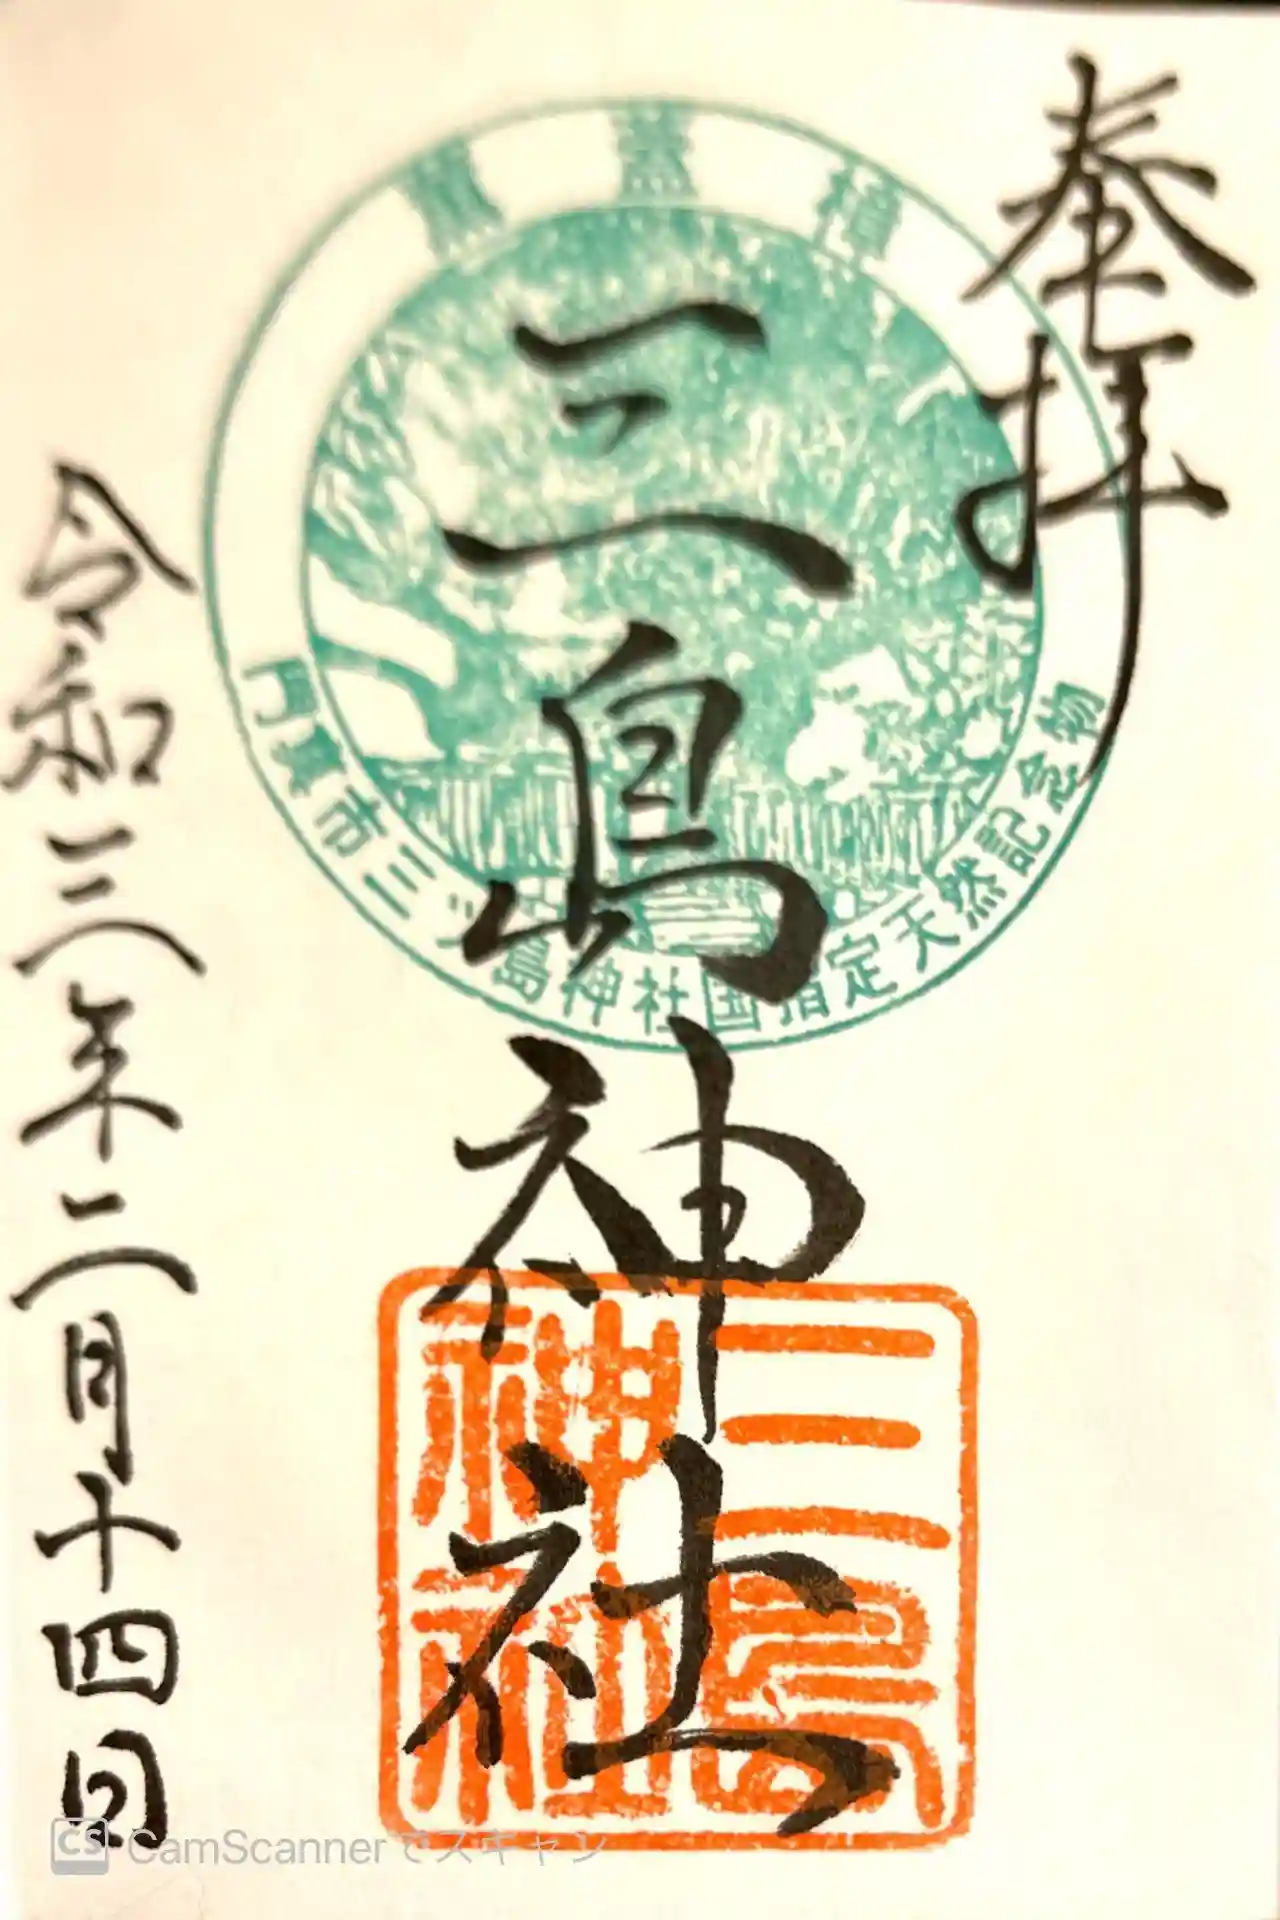 奉拝
三島神社
令和三年二月十四日
薫蓋樟
門真市三ツ島神社国指定天然記念物
三島神社
CS CamScannerでスキャン